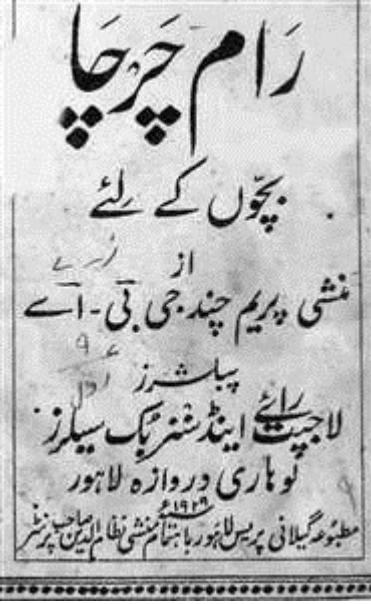 رَام چَرچَا
بچّوں کے لِئے
از
منشی پریم چند جی بی - اے
پبلشرز
لاجپت رائے اینڈ سنز بُک سیلرز
لوہاری دروازہ لاہور
۱۹۲۹ء
مطبوعہ گیلانی پریس لاہور باہتمام منشی نظام الدین صاحب پرنٹر